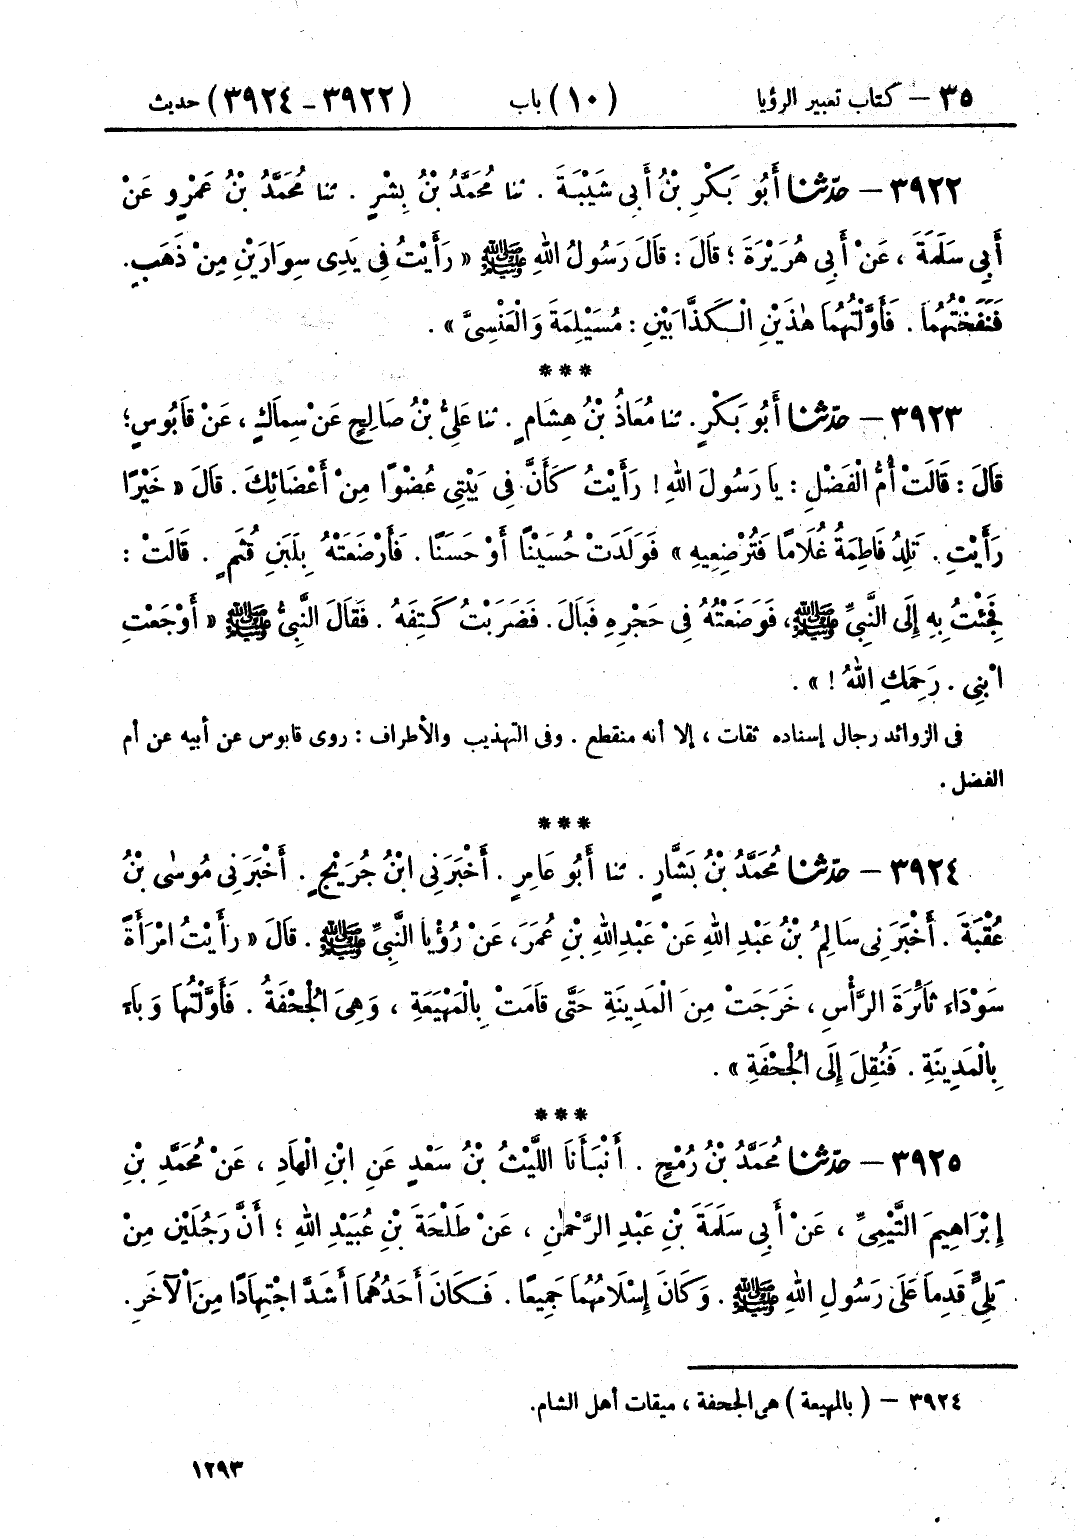 ٣٥ – كتاب تعبير الرؤيا (١٠) باب (٣٩٢٢ – ٣٩٢٤) حديث
٣٩٢٢ – حدّثنا أَبُو بَكْرِ بْنُ أَبِي شَيْبَةَ . ثنا مُحَمَّدُ بْنُ بِشْرٍ . ثنا مُحَمَّدُ بْنُ عَمْرٍو عَنْ
أَبِي سَلَمَةَ ، عَنْ أَبِي هُرَيْرَةَ ؛ قَالَ : قَالَ رَسُولُ اللهِ ﷺ « رَأَيْتُ فِى يَدِى سِوَارَيْنِ مِنْ ذَهَبٍ.
فَنَفَخْتُهُمَا . فَأَوَّلْتُهُمَا هٰذَيْنِ الْكَذَّابَيْنِ : مُسَيْلِمَةَ وَالْعَنْسِىَّ » .
***
٣٩٢٣ – حدّثنا أَبُو بَكْرٍ. ثنا مُعَاذُ بْنُ هِشَامٍ . ثنا عَلِىُّ بْنُ صَالِحٍ عَنْ سِمَاكٍ ، عَنْ قَابُوسٍ؛
قَالَ : قَالَتْ أُمُّ الْفَضْلِ : يَا رَسُولَ اللهِ ! رَأَيْتُ كَأَنَّ فِى بَيْتِى عُضْوًا مِنْ أَعْضَائِكَ . قَالَ « خَيْرًا
رَأَيْتِ . تَلِدُ فَاطِمَةُ غُلَامًا فَتُرْضِعِيهِ » فَوَلَدَتْ حُسَيْنًا أَوْ حَسَنًا . فَأَرْضَعَتْهُ بِلَبَنِ قُثَمٍ . قَالَتْ :
فَجِئْتُ بِهِ إِلَى النَّبِىِّ ﷺ، فَوَضَعْتُهُ فِى حَجْرِهِ فَبَالَ . فَضَرَبْتُ كَتِفَهُ . فَقَالَ النَّبِىُّ ﷺ « أَوْجَعْتِ
ابْنِى . رَحِمَكِ اللهُ ! » .
فى الزوائد رجال إسناده ثقات ، إلا أنه منقطع . وفى التهذيب والأطراف : روى قابوس عن أبيه عن أم
الفضل .
***
٣٩٢٤ – حدّثنا مُحَمَّدُ بْنُ بَشَّارٍ . ثنا أَبُو عَامِرٍ . أَخْبَرَنِى ابْنُ جُرَيْجٍ . أَخْبَرَنِى مُوسٰى بْنُ
عُقْبَةَ . أَخْبَرَنِى سَالِمُ بْنُ عَبْدِ اللهِ عَنْ عَبْدِاللهِ بْنِ عُمَرَ، عَنْ رُؤْيَا النَّبِىِّ ﷺ . قَالَ « رَأَيْتُ امْرَأَةً
سَوْدَاءَ ثَائِرَةَ الرَّأْسِ ، خَرَجَتْ مِنَ الْمَدِينَةِ حَتَّى قَامَتْ بِالْمَهْيَعَةِ ، وَهِىَ الْجُحْفَةُ . فَأَوَّلْتُهَا وَبَاءً
بِالْمَدِينَةِ . فَنُقِلَ إِلَى الْجُحْفَةِ » .
***
٣٩٢٥ – حدّثنا مُحَمَّدُ بْنُ رُمْحٍ . أَنْبَأَنَا اللَّيْثُ بْنُ سَعْدٍ عَنِ ابْنِ الْهَادِ ، عَنْ مُحَمَّدِ بْنِ
إِبْرَاهِيمَ التَّيْمِىِّ ، عَنْ أَبِي سَلَمَةَ بْنِ عَبْدِ الرَّحْمٰنِ ، عَنْ طَلْحَةَ بْنِ عُبَيْدِ اللهِ ؛ أَنَّ رَجُلَيْنِ مِنْ
بَلِىٍّ قَدِمَا عَلَى رَسُولِ اللهِ ﷺ . وَكَانَ إِسْلَامُهُمَا جَمِيعًا . فَكَانَ أَحَدُهُمَا أَشَدَّ اجْتِهَادًا مِنَ الْآخَرِ.
٣٩٢٤ – ( بالمهيعة ) هى الجحفة ، ميقات أهل الشام.
١٢٩٣